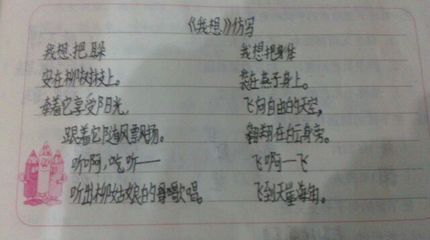 《我想》仿写
我想把
安在柳树枝上。
牵着它享受阳光,
跟着它随风飘扬。
听啊,听——
听出柳姑娘的唱欢唱。
我想把身体
装在燕子身上。
飞向自由的天空,
翱翔在白云身旁。
飞啊—飞
飞到天崖海角。